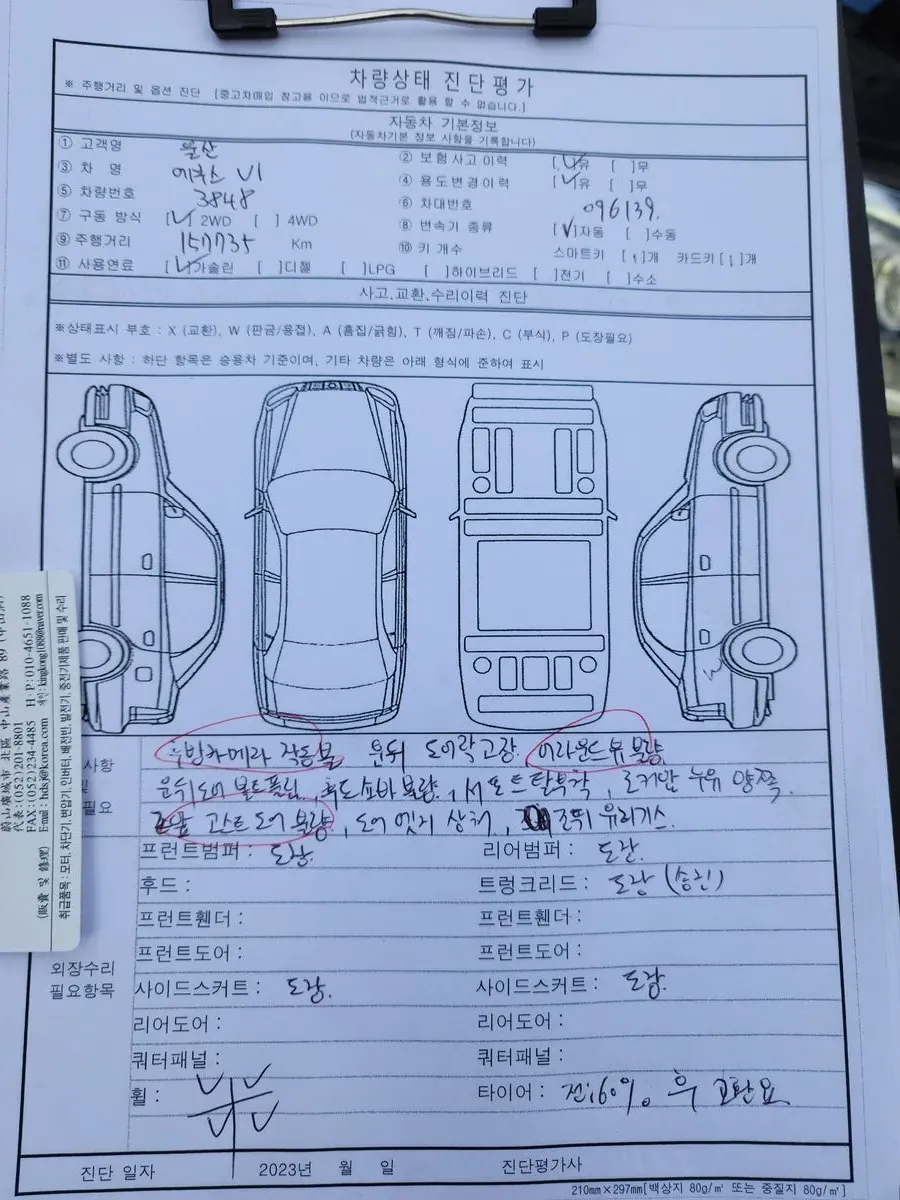 차량상태 진단평가
※ 주행거리 및 옵션 진단 [중고차매입 참고용 이므로 법적근거로 활용 할 수 없습니다.]
자동차 기본정보
(자동차기본 정보 사항을 기록합니다)
① 고객명 울산 ② 보험사고 이력 [✓]유 [ ]무
③ 차 명 에쿠스 VI ④ 용도변경이력 [✓]유 [ ]무
⑤ 차량번호 3848 ⑥ 차대번호 096139.
⑦ 구동 방식 [✓] 2WD [ ] 4WD ⑧ 변속기 종류 [✓]자동 [ ]수동
⑨ 주행거리 157735 Km ⑩ 키 개수 스마트키 [1]개 카드키 [1]개
⑪ 사용연료 [✓]가솔린 [ ]디젤 [ ]LPG [ ]하이브리드 [ ]전기 [ ]수소
사고.교환.수리이력 진단
※상태표시 부호 : X (교환), W (판금/용접), A (흠집/긁힘), T (깨짐/파손), C (부식), P (도장필요)
※별도 사항 : 하단 항목은 승용차 기준이며, 기타 차량은 아래 형식에 준하여 표시
사항 후방카메라 작동불 운뒤 도어락고장. 어라운드뷰 불량
운뒤도어 볼트풀림, 불량, 탈부착, 로커암 누유 양쪽
필요 고스트도어 불량, 도어 엣지 상처, 조뒤 유리기스.
프런트범퍼 : 도장. 리어범퍼 : 도장.
후드 : 트렁크리드 : 도장
프런트휀더 : 프런트휀더 :
프런트도어 : 프런트도어 :
외장수리
필요항목
사이드스커트 : 도장. 사이드스커트 : 도장.
리어도어 : 리어도어 :
쿼터패널 : 쿼터패널 :
휠 : ✓ ✓ ✓ ✓ 타이어 : 전:60%. 후 교환요
진단 일자 2023년 월 일 진단평가사
210mm×297mm[백상지 80g/㎡ 또는 중질지 80g/㎡]
蔚山廣域市 北區 中山産業路 89
代表:(052)201-8801 H·P:010-4651-1088
FAX:(052)234-4485
E-mail: hdsj@korea.com
(販賣 및 修理)
취급품목: 모터, 차단기, 변압기, 인버터, 배전반, 발전기, 중전기제품 판매 및 수리